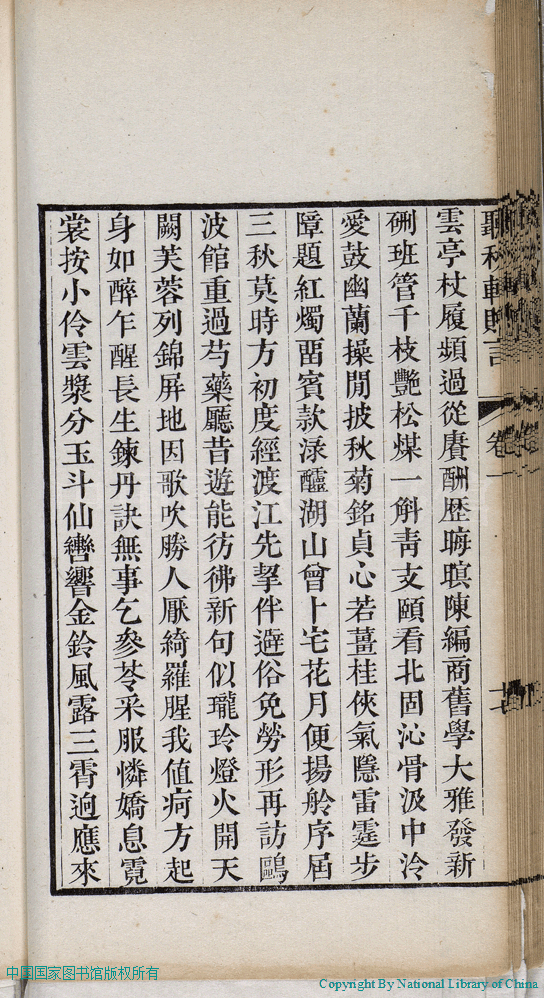 聽秋軒贈言 卷一
雲亭杖履頻過從賡酬歷晦暝陳編商舊學大雅發新
硎班管千枝艷松煤一斛靑支頤看北固沁骨汲中泠
愛鼓幽蘭操閒披秋菊銘貞心若薑桂俠氣隱雷霆步
障題紅燭畱賓款淥醽湖山曾卜宅花月便揚舲序屆
三秋莫時方初度經渡江先挈伴避俗免勞形再訪鷗
波館重過芍藥廳昔遊能彷彿新句似瓏玲燈火開天
闕芙蓉列錦屏地因歌吹勝人厭綺羅腥我値疴方起
身如醉乍醒長生鍊丹訣無事乞參苓采服憐嬌息霓
裳按小伶雲漿分玉斗仙轡響金鈴風露三霄逈應來
中国国家图书馆版权所有
Copyright By National Library of China